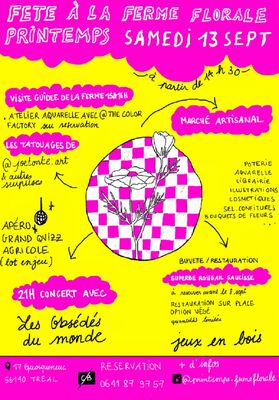 FETE À LA FERME FLORALE
PRINTEMPS SAMEDI 13 SEPT
à partir de 14h30
VISITE GUIDÉE DE LA FERME 15h-16h
. ATELIER AQUARELLE AVEC @THE COLOR
FACTORY sur réservation
LES TATOUAGES DE
@joelante.art
& autres
surprises
MARCHÉ ARTISANAL
POTERIE
AQUARELLE
LIBRAIRIE
ILLUSTRATIONS
COSMÉTIQUES
SEL CONFITURES
BOUQUETS DE FLEURS
...
APÉRO
GRAND QUIZZ
AGRICOLE
(lot enjeu)
BUVETE / RESTAURATION
SUPERBE ROUGAIL SAUCISSE
à réserver avant le 8 sept
RESTAURATION SUR PLACE
OPTION VÉGÉ
quantités limitées
21H CONCERT AVEC
Les Obsédés
du monde
jeux en bois
17 Guoiqueneuc
56140 TRÉAL
RESERVATION
06 41 87 97 57
+ d'infos
@printemps.fermeflorale